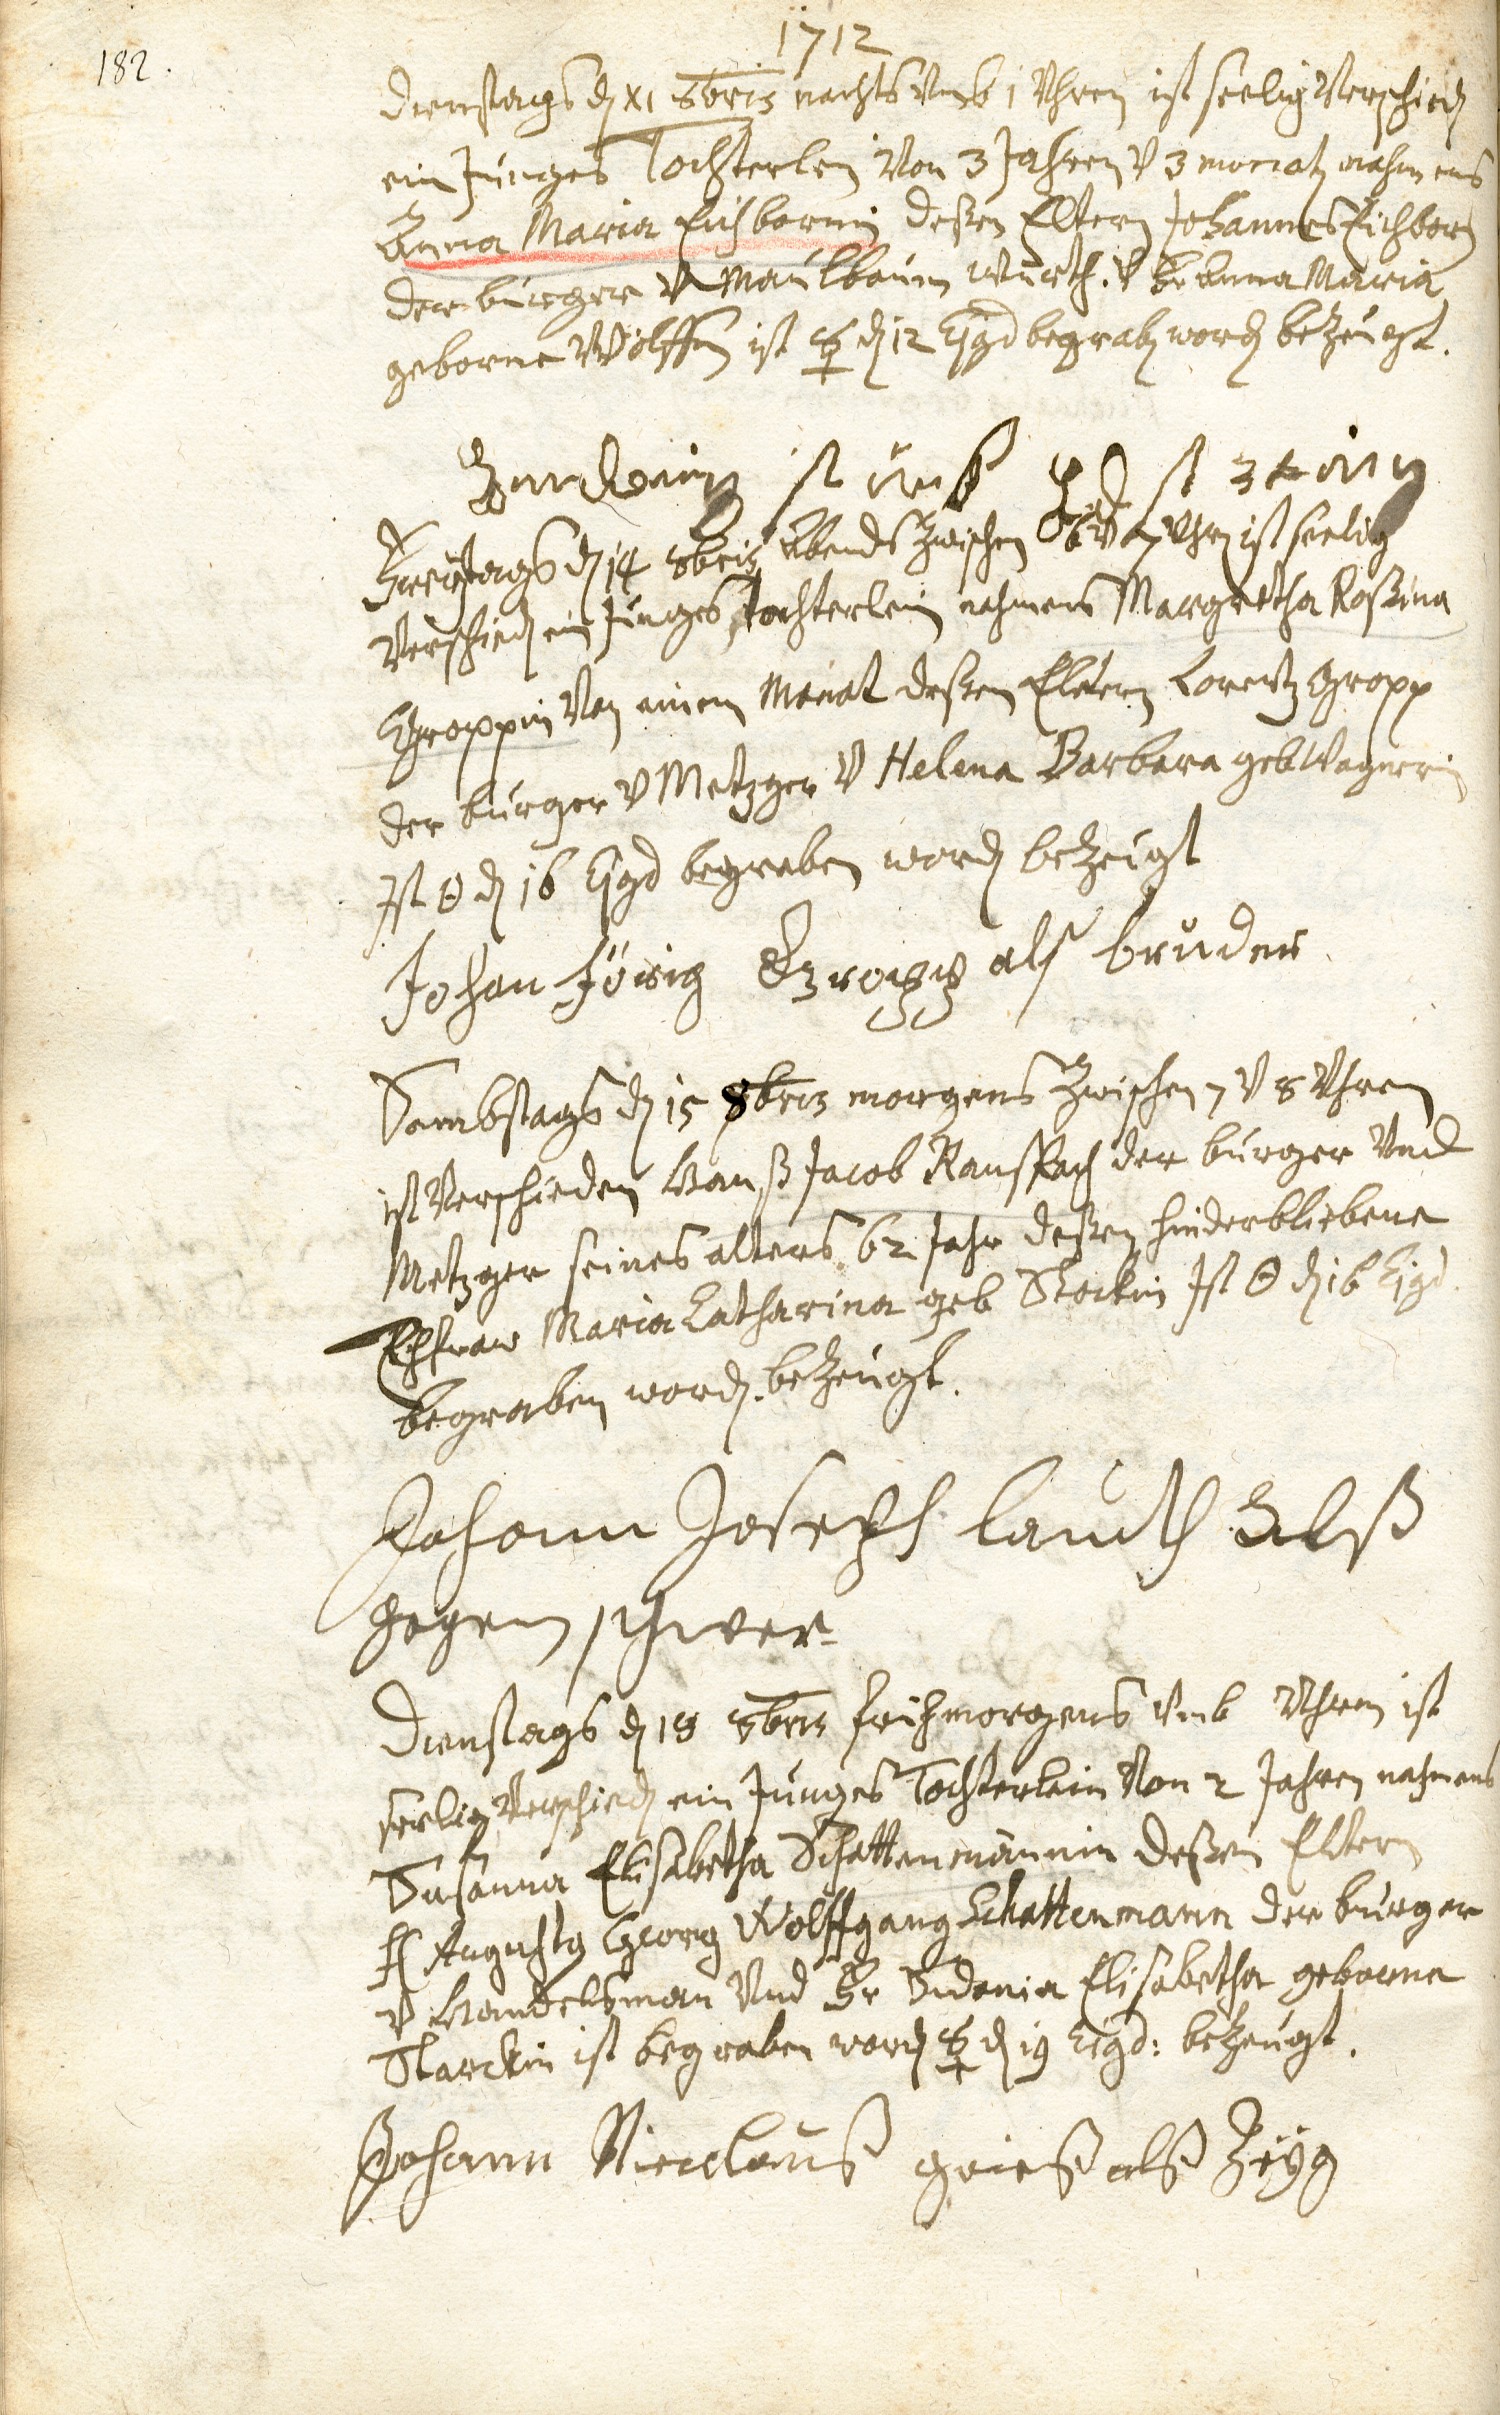 1712
182.
Dienstags dj XI 8bris nachts Vmb 1 Vhren ist seelig Verschiedj
ein Junges Tochterlen Von 3 Jahren V 3 monatj nahmens
Anna Maria Eichbornin deßen Eltern Johannes Eichborn
der burger V Maulbaum Würth. V Fr Anna Maria
geborne Wölffin ist ☿ dj 12 Ejgd begrabj wordj bezeugt.
Freytags dj 14 8bris Abends Zwischen 6 V 7 Vhrj ist seelig
Verschiedj ein Junges Tochterlein nahmens Margretha Roßina
Groppin Von einem Monat deßen Eltern Lorentz Gropp
der burger V Metzger V Helena Barbara geb Wagnerin
Ist ☉ dj 16 Ejgd begraben wordj bezeugt
Johan Görig Gropp als bruder
Sambstags dj 15 8bris morgens Zwischen 7 V 8 Vhren
ist Verschieden Hanß Jacob Rauspach der burger Vnd
Metzger seines alters 62 Jahr deßen hinderbliebene
Ehfraw Maria Catharina geb Stockin Ist ☉ dj 16 Ejgd
begraben wordj. bezeugt.
Johann Joseph Lauth Alß
gegen schwer
Dienstags dj 18 8bris frühmorgens Vmb Vhren ist
seelig Verschiedj ein Junges Tochterlein Von 2 Jahren nahmens
Susanna Elisabetha Schattenmännin deßen Eltern
H Augustg Georg Wolffgang Schattenmann der burger
V Handelsman Vnd Fr Sidonia Elisabetha geborne
Starckin ist begraben wordj ☿ dj 19 Ejgd: bezeugt.
Johann Nicclauß grieß alß Zeyg